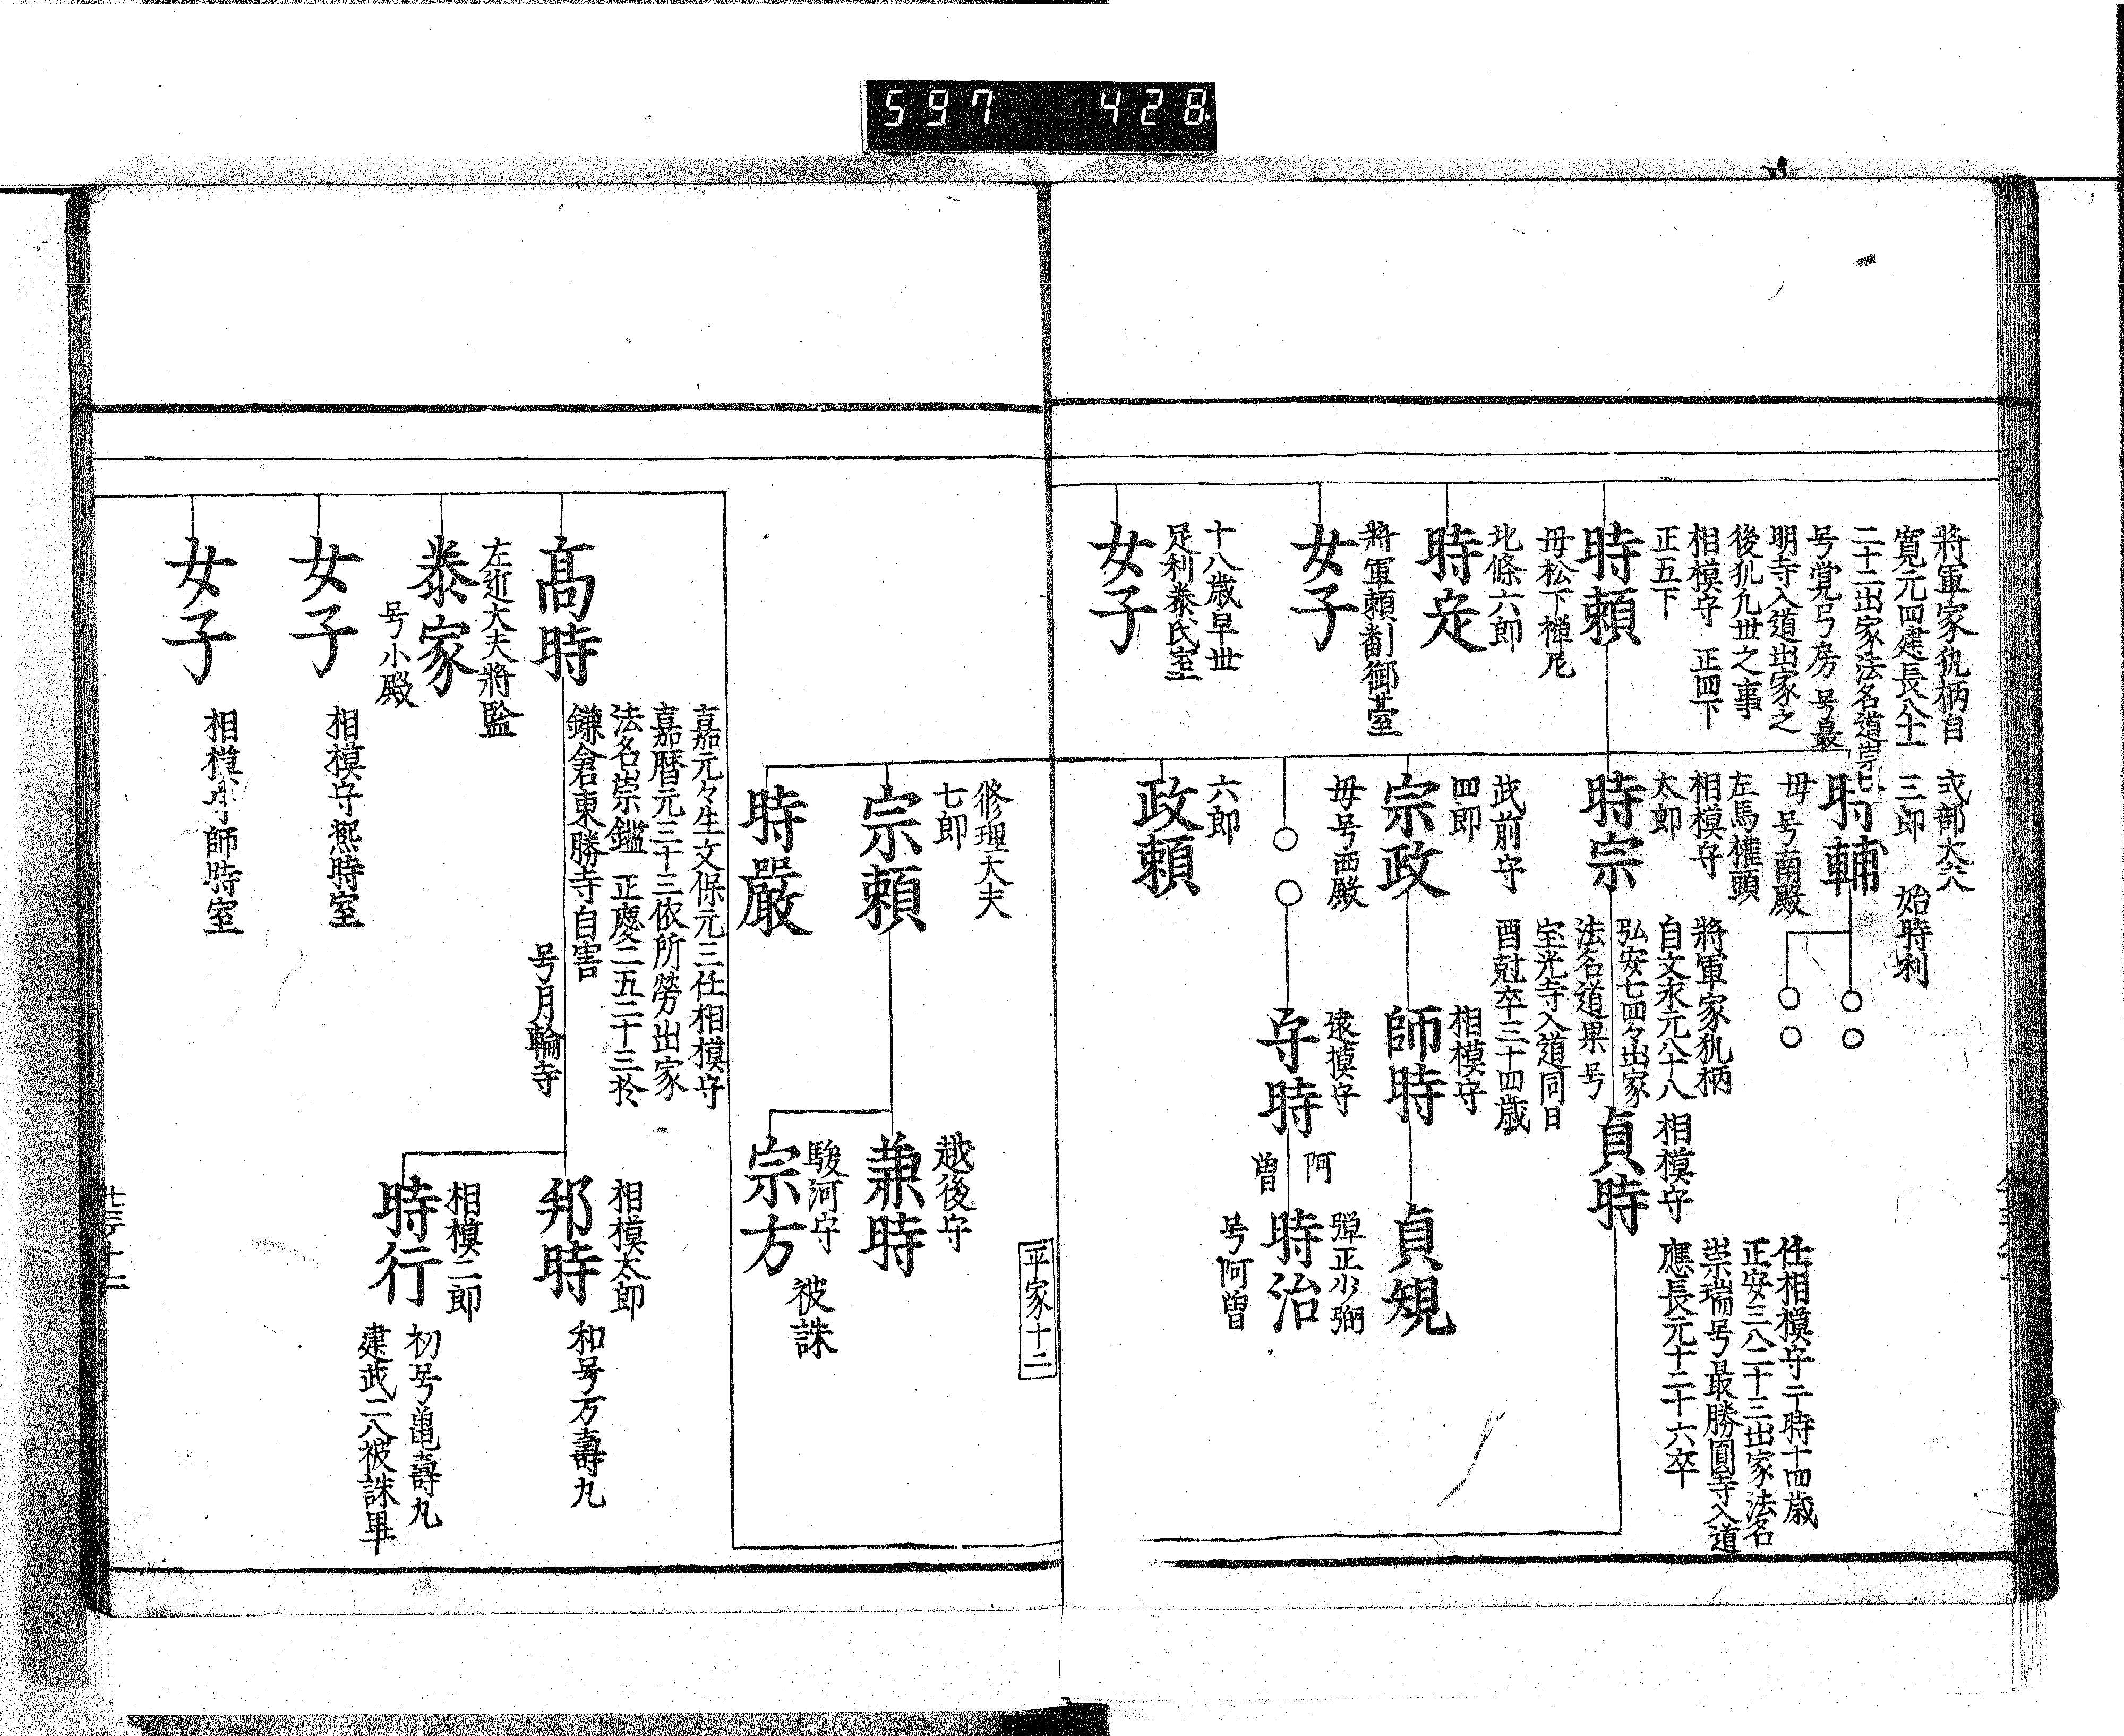 597 428
將軍家執柄自
寛元四建長八十一
二十二出家法名道崇
号覚弓房 号最
明寺入道出家之
後執九世之事
相模守 正四下
正五下
時頼
母松下禅尼
北條六郎
時定
將軍頼嗣御臺
女子
十八歳早世
足利泰氏室
女子
式部大夫
三郎 始時利
時輔
母号南殿
左馬権頭
相模守
太郎
時宗
將軍家執柄
自文永元八十八
弘安七四々出家
法名道果号
宝光寺入道同日
酉尅卒三十四歳
相模守
貞時
任相模守于時十四歳
正安三八二十三出家法名
崇瑞号最勝圓寺入道
應長元十二十六卒
武前守
四郎
宗政
母号西殿
相模守
師時
貞規
遠摸守
守時
阿曽
弾正少弼
時治
号阿曽
六郎
政頼
平家十二
修理大夫
七郎
宗頼
越後守
兼時
駿河守
宗方
被誅
時嚴
高時
嘉元々生文保元三任相模守
嘉暦元三十三依所労出家
法名崇鑑 正慶二五二十三於
鎌倉東勝寺自害
号月輪寺
相模太郎
邦時
和号万壽丸
相模二郎
時行
初号亀壽丸
建武二八被誅畢
左近大夫將監
泰家
号小殿
女子
相模守熙時室
女子
相模守師時室